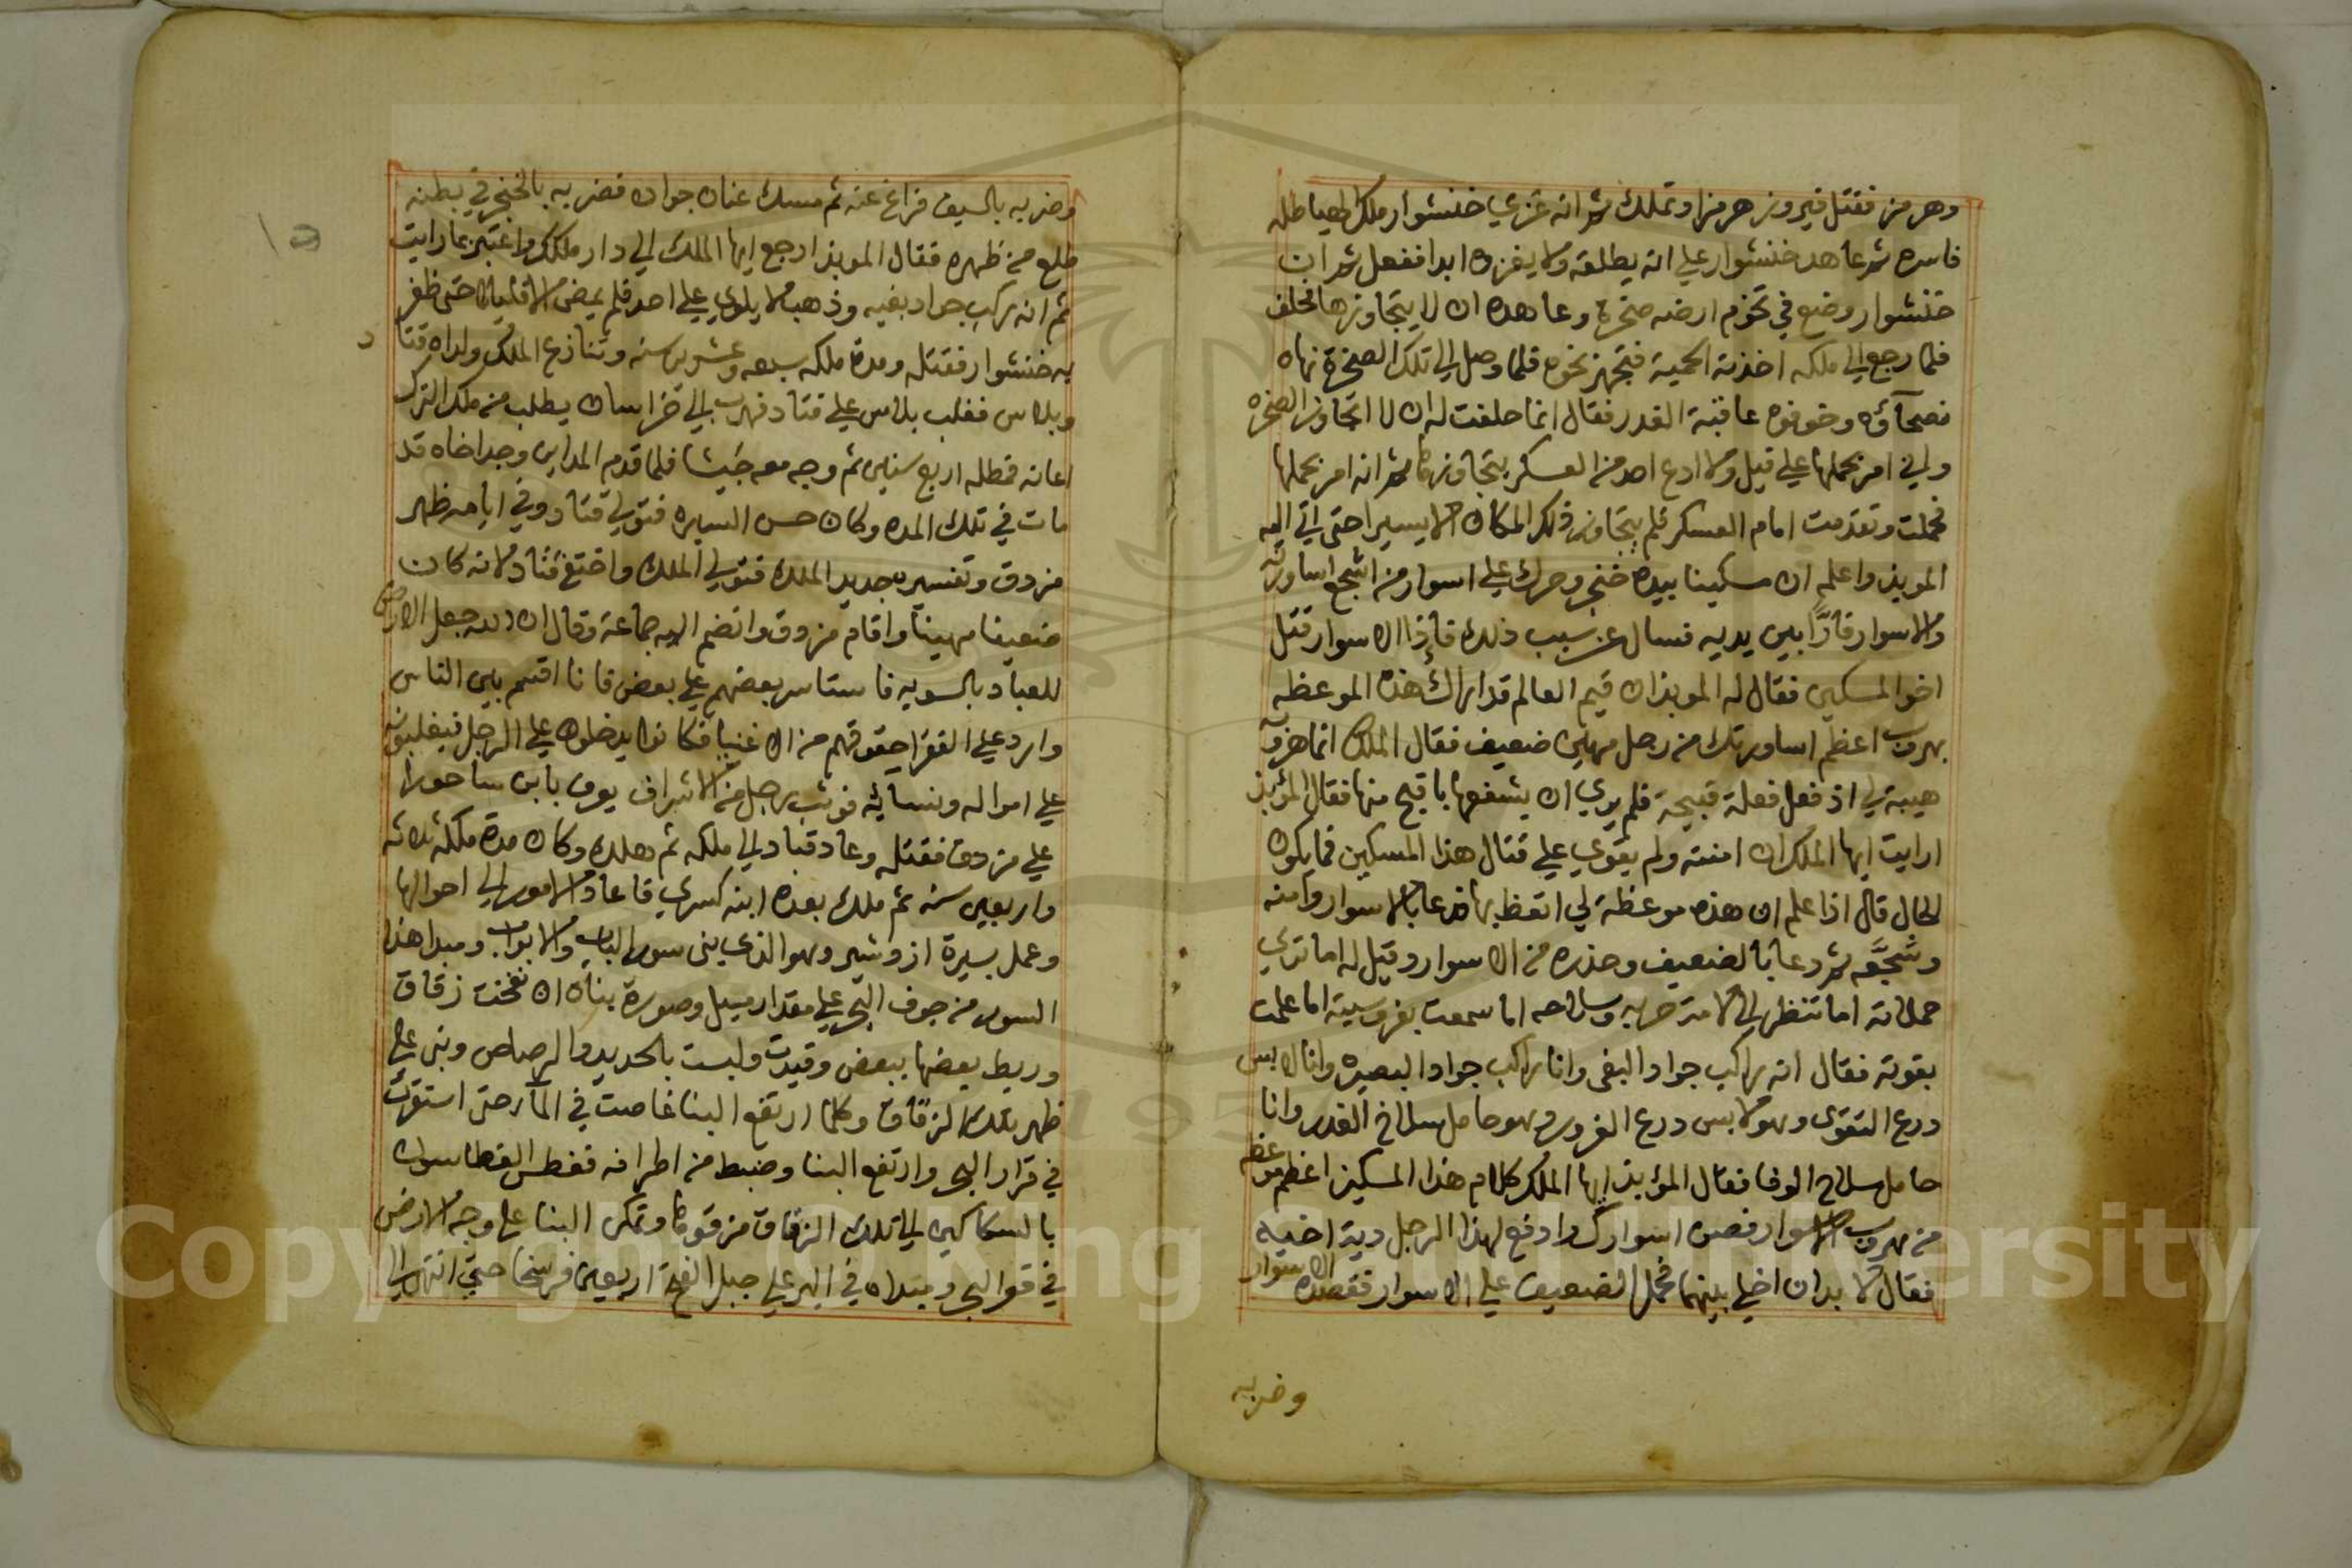 وهرمز فقتل فيروز هرمزا وتملك ثم انه غزي خنشوار ملك الهياطله
فاسره ثم عاهد خنشوار علي انه يطلقه ولا يغزوه ابدا ففعل ثم ان
خنشوار وضع في تخوم ارضه صخرة وعاهده ان لا يتجاوزها فحلف
فلما رجع الي ملكه اخذته الحمية فتجهز نحوه فلما وصل الي تلك الصخرة نهاه
نصحآؤه وخوفوه عاقبة الغدر فقال انما حلفت له ان لا اتجاوز الصخره
واني امر بحملها علي فيل ولا ادع احد من العسكر يتجاوزها ثم انه امر بحملها
فحملت وتقدمت امام العسكر فلم يتجاوز ذلك المكان الا يسيرا حتى اتي اليه
الموبذ واعلم ان مسكينا بيده خنجر وحرك علي اسوار من اشجع اساورته
والاسوار فارًّا بين يديه فسال عن سبب ذلك فاذا الاسوار قتل
اخو المسكين فقال له الموبذ ان قيم العالم قد اراك هذه الموعظه
بهروب اعظم اساورتك من رجل مهين ضعيف فقال الملك انما هروبه
هيبة لي اذ فعل فعلة قبيحة فلم يري ان يشفعها باقبح منها فقال الموبذ
ارايت ايها الملك ان امنته ولم يقوي علي قتال هذا المسكين فما يكون
الحال قال اذا علم ان هذه موعظة لي اتعظ بها فدعا بالاسوار وامنه
وشجَّعه ثم دعا بالضعيف وحذره من الاسوار وقيل له اما تري
حملاته اما تنظر الي لامة حربه وسلاحه اما سمعت بفروسيته اما علمت
بقوته فقال انه راكب جواد البغي وانا راكب جواد البصيره وانا لابس
درع التقوى وهو لابس درع الغرور وهو حامل سلاح الغدر وانا
حامل سلاح الوفا فقال الموبذ ايها الملك كلام هذا المسكين اعظم موعظه
من هروب الاسوار فصن اسوارك وادفع لهذا الرجل دية اخيه
فقال لا بد ان اخلي بينهما فحمل الضعيف علي الاسوار فقصده الاسوار
وضربه
وضربه بالسيف فزاغ عنه ثم مسك عنان جواده فضربه بالخنجر في بطنه
طلع من ظهره فقال الموبذ ارجع ايها الملك الي دار ملكك واعتبر بما رايت
ثم انه ركب جواد بغيه وذهب لا يلوي علي احد فلم يمض الا قليلا حتى ظفر
به خنشوار فقتله ومدة ملكه سبعه وعشرين سنه وتنازع الملك ولداه قتاد
وبلاس فغلب بلاس علي قتاد فهرب الي خراسان يطلب من ملك الترك
اعانه فمطله اربع سنين ثم وجه معه جَيشا فلما قدم المداين وجد اخاه قد
مات في تلك المده وكان حسن السيره فتولي قتاد وفي ايامه ظهر
مزدق وتفسيره جديد الملك فتولي الملك واختلع قتاد لانه كان
ضعيفا مهينا واقام مزدق وانضم اليه جماعة وقال ان الله جعل الارض
للعباد بالسويه فاستاسر بعضهم علي بعض فانا اقسم بين الناس
وارد علي الفقرا حقوقهم من الاغنيا فكانوا يدخلون علي الرجل فيغلبونه
علي امواله ونسائه فوثب رجل من الاشراف يعرف بابن ساحورا
علي مزدق فقتله وعاد قباد الي ملكه ثم هلك وكان مدة ملكه ثلاثه
واربعين سنه ثم ملك بعده ابنه كسري فاعاد الامور الي احوالها
وعمل بسيرة ازدشير وهو الذي بنى سور الباب والابواب ومبدا هذا
السور من جوف البحر علي مقدار ميل وصورة بناه ان نفخت زقاق
وربط بعضها ببعض وقيدت ولبست بالحديد والرصاص وبنى علي
ظهر تلك الزقاق وكلما ارتفع البنا غاصت في المآء حتى استقرت
في قرار البحر وارتفع البنا وضبط من اطرافه فغطس الغطاسون
بالسكاكين الي تلك الزقاق مزقوها وتمكن البنا علي وجه الارض
في قعر البحر ومبتداه في البر علي جبل الفتح اربعين فرسخا حتى انتهي الي